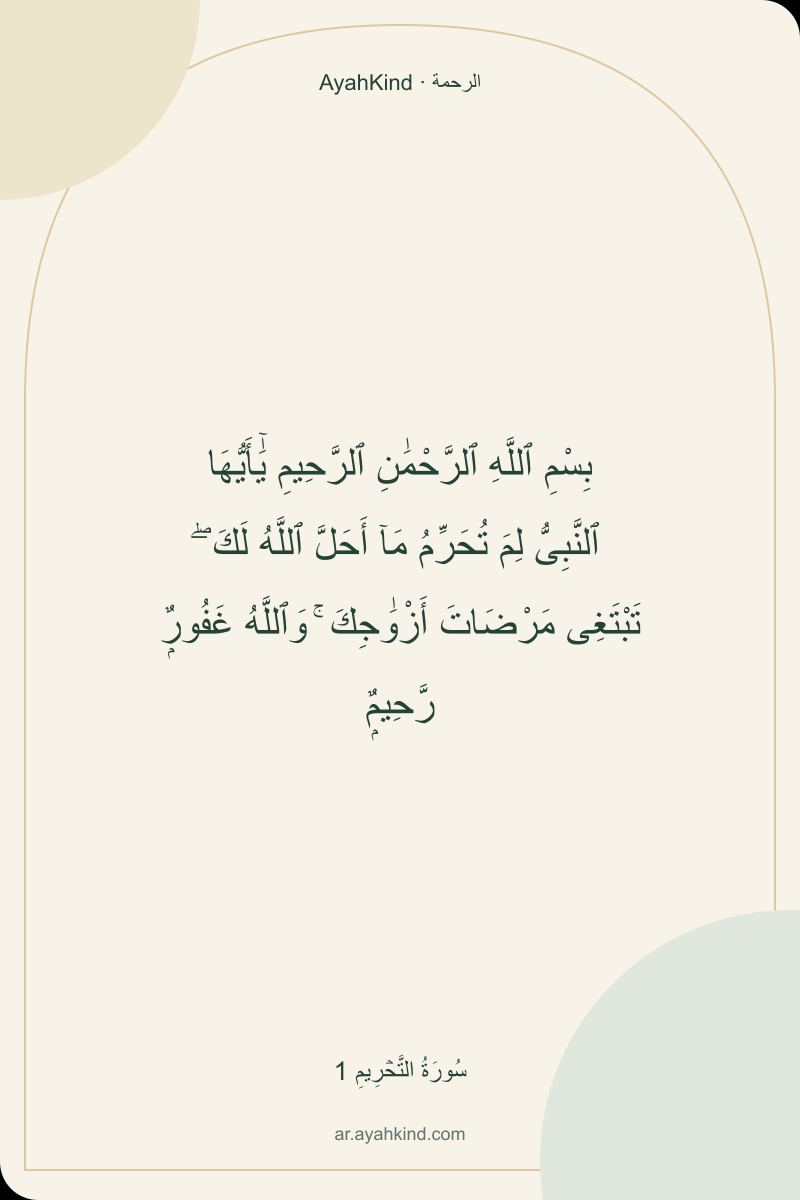 AyahKind · الرحمة
بِسْمِ ٱللَّهِ ٱلرَّحْمَٰنِ ٱلرَّحِيمِ يَٰٓأَيُّهَا
ٱلنَّبِىُّ لِمَ تُحَرِّمُ مَآ أَحَلَّ ٱللَّهُ لَكَ ۖ
تَبْتَغِى مَرْضَاتَ أَزْوَٰجِكَ ۚ وَٱللَّهُ غَفُورٌۭ
رَّحِيمٌۭ
سُورَةُ التَّحۡرِيمِ 1
ar.ayahkind.com